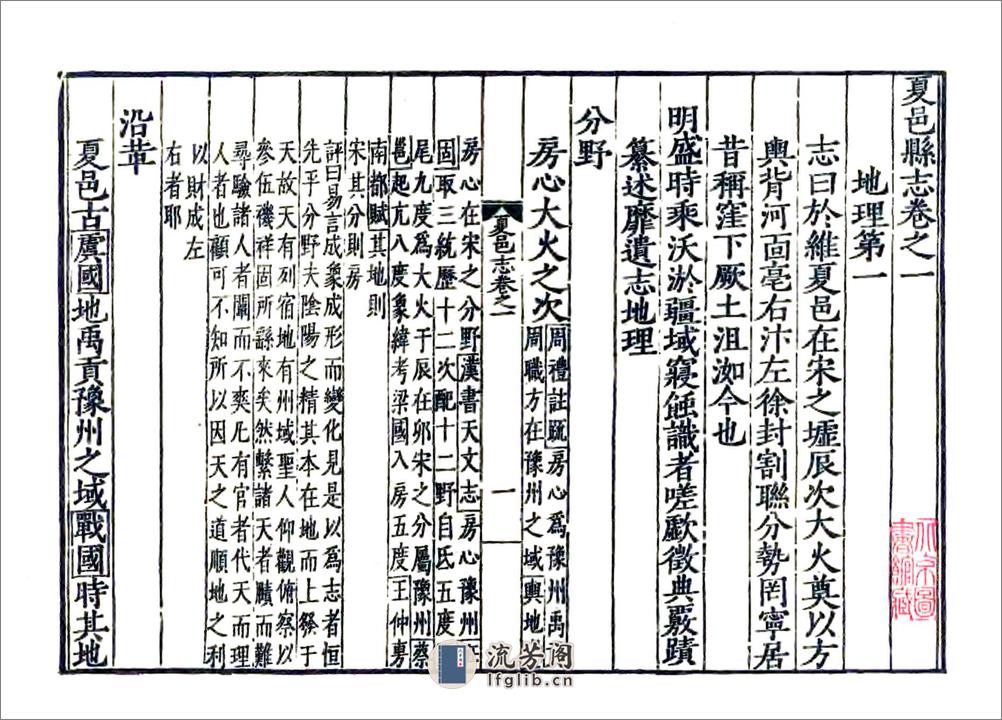 夏邑縣志卷之一
地理第一
志曰於維夏邑在宋之墟辰次大火奠以方
輿背河面亳右汴左徐封割聯分勢罔寧居
昔稱窪下厥土沮洳今也
明盛時乘沃淤疆域寢蝕識者嗟歎徵典覈蹟
纂述靡遺志地理
分野
房心大火之次
周禮註䟽房心爲豫州禹
周職方在豫州之域輿地
房心在宋之分野漢書天文志房心豫州
固取三統歷十二次配十二野自氐五度
尾九度爲大火于辰在卯宋之分屬豫州蔡
邕起亢八度象緯考梁國入房五度王仲旉
南都賦其地則
宋其分則房
評曰易言成象成形而變化見是以爲志者恒
先乎分野夫陰陽之精其本在地而上發于
天故天有列宿地有州域聖人仰觀俯察以
參伍禨祥固所繇來矣然繫諸天者賾而難
尋驗諸人者闢而不爽凢有官者代天而理
人者也顧可不知所以因天之道順地之利
以財成左
右者耶
沿革
夏邑古虞國地禹貢豫州之域戰國時其地
夏邑志卷之一
一
流芳阁
lfglib.cn